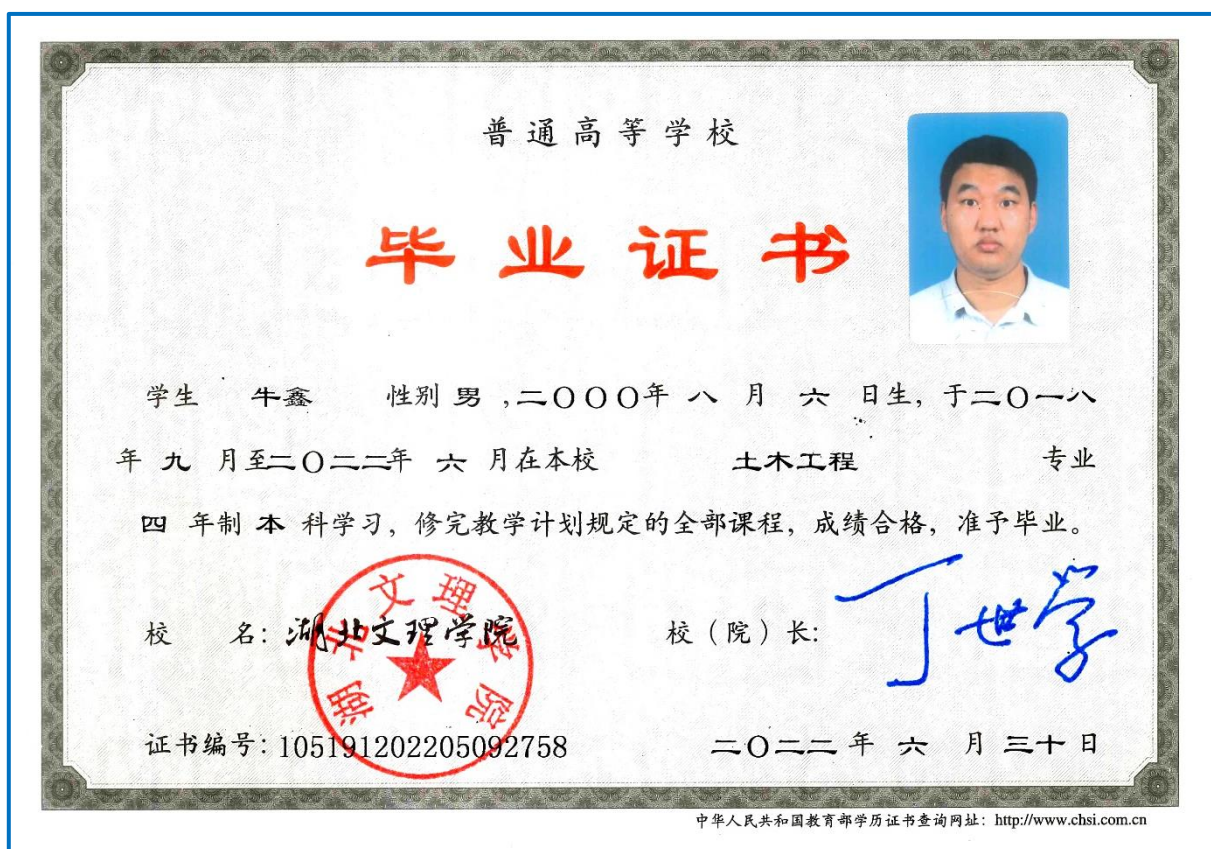 普通高等学校
毕业证书
学生 牛鑫 性别 男 ,二〇〇〇年 八 月 六 日生, 于二〇一八
年 九 月至二〇二二年 六 月在本校 土木工程 专业
四 年制 本 科学习, 修完教学计划规定的全部课程, 成绩合格, 准予毕业。
湖北文理学院
校 名: 湖北文理学院 校（院）长: 丁世学
证书编号: 105191202205092758 二〇二二 年 六 月 三十 日
中华人民共和国教育部学历证书查询网址: http://www.chsi.com.cn